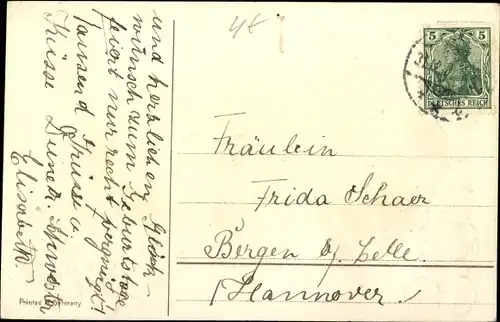 und herzlichen Glück-
wünsch zum Geburtstage
feiert nur recht vergnügt!
Tausend Grüsse u.
Küsse Deine tr. Schwester
Elisabeth.
Fräulein
Frida Schaer
Bergen b/ Celle.
/Hannover./
5 5
DEUTSCHES REICH
Printed in Germany